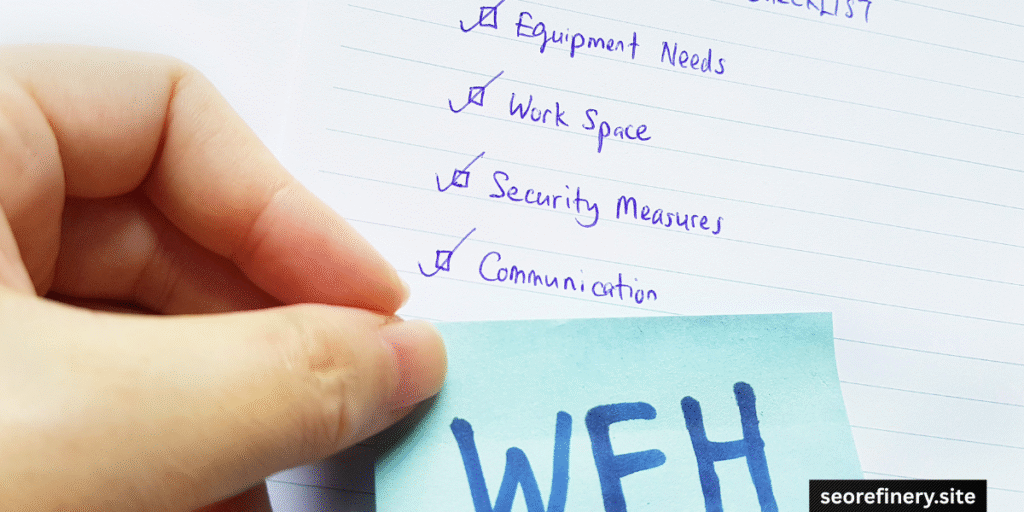 CHECKLIST
Equipment Needs
Work Space
Security Measures
Communication
WFH
seorefinery.site